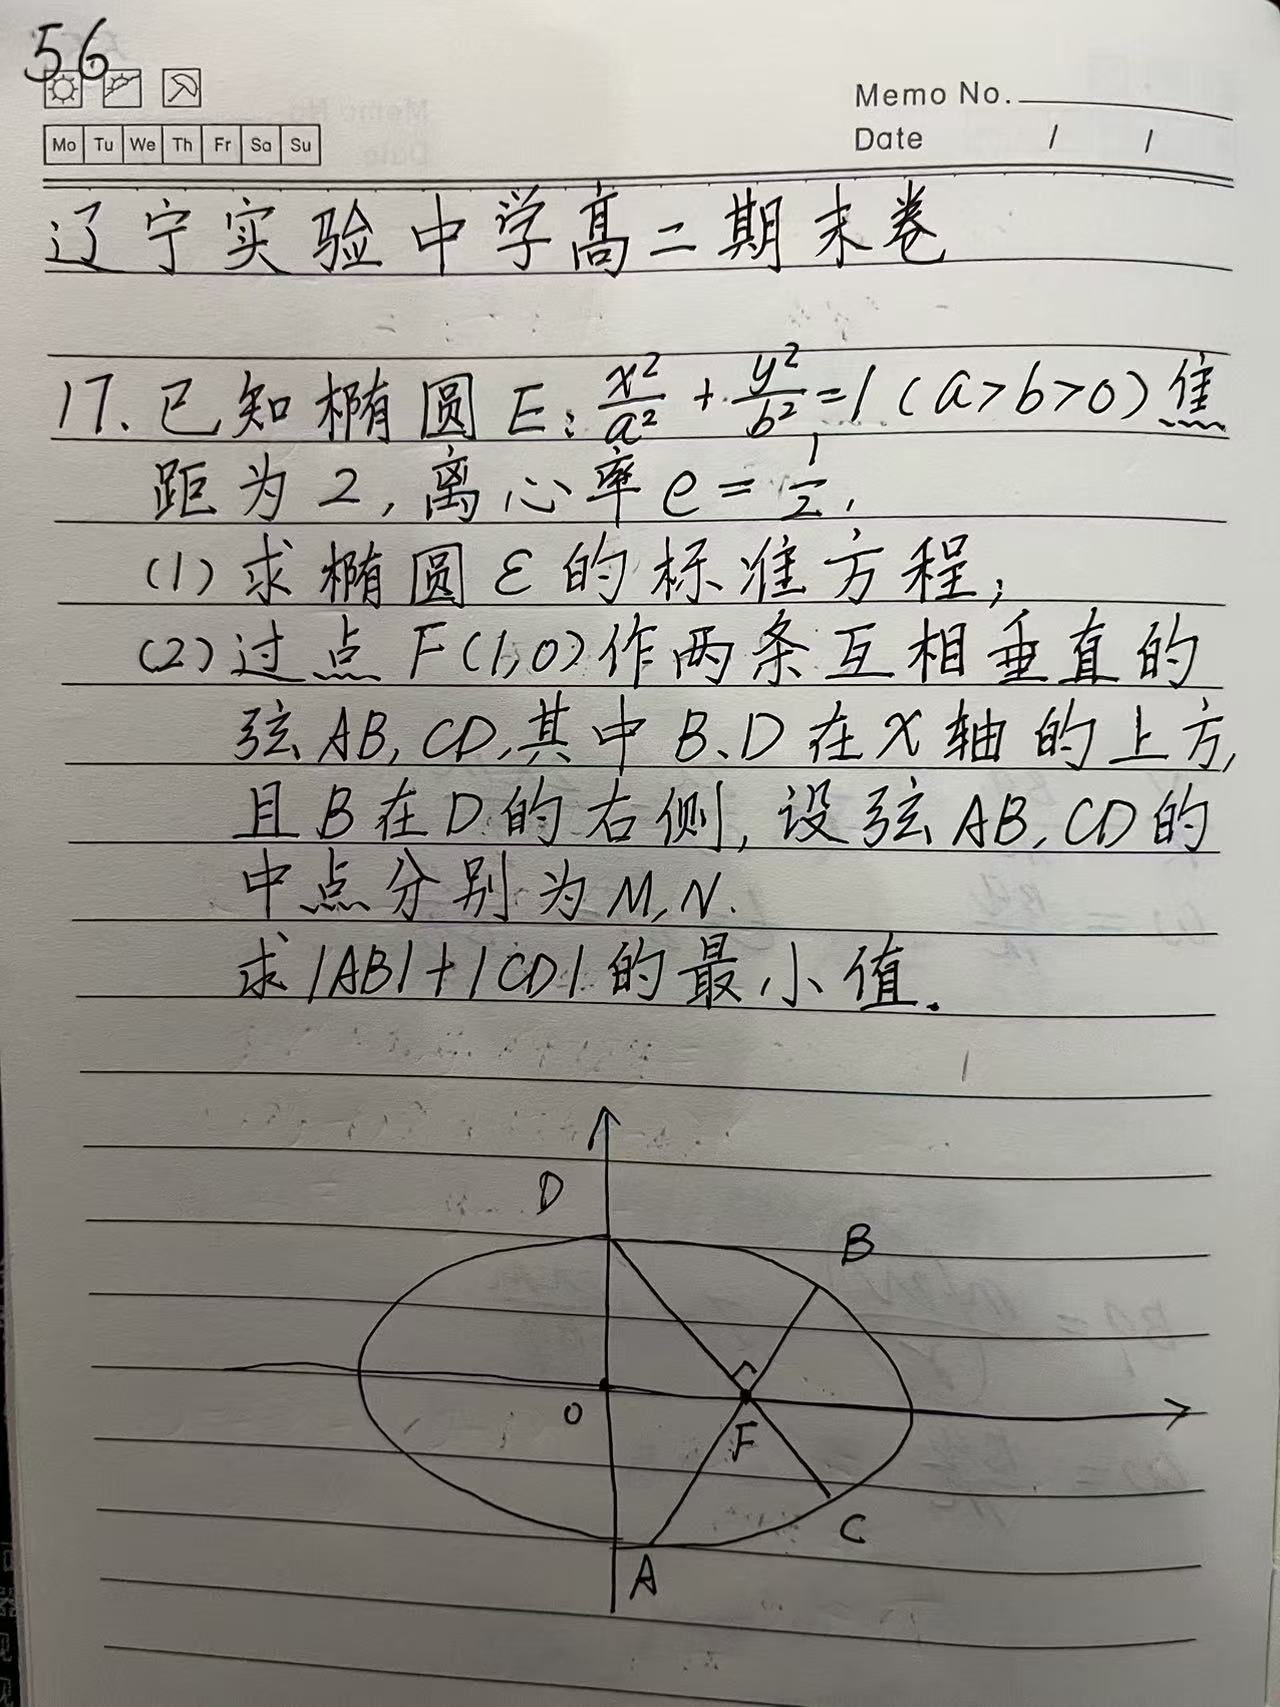 56
Memo No.
Mo Tu We Th Fr Sa Su
Date / /
辽宁实验中学高二期末卷
17. 已知椭圆E: x²/a² + y²/b² = 1 (a>b>0) 焦
距为2, 离心率e = 1/2,
(1) 求椭圆ε的标准方程;
(2) 过点F(1,0)作两条互相垂直的
弦AB, CD, 其中B、D在x轴的上方,
且B在D的右侧, 设弦AB, CD的
中点分别为M, N.
求|AB|+|CD|的最小值.
D
B
O
F
C
A